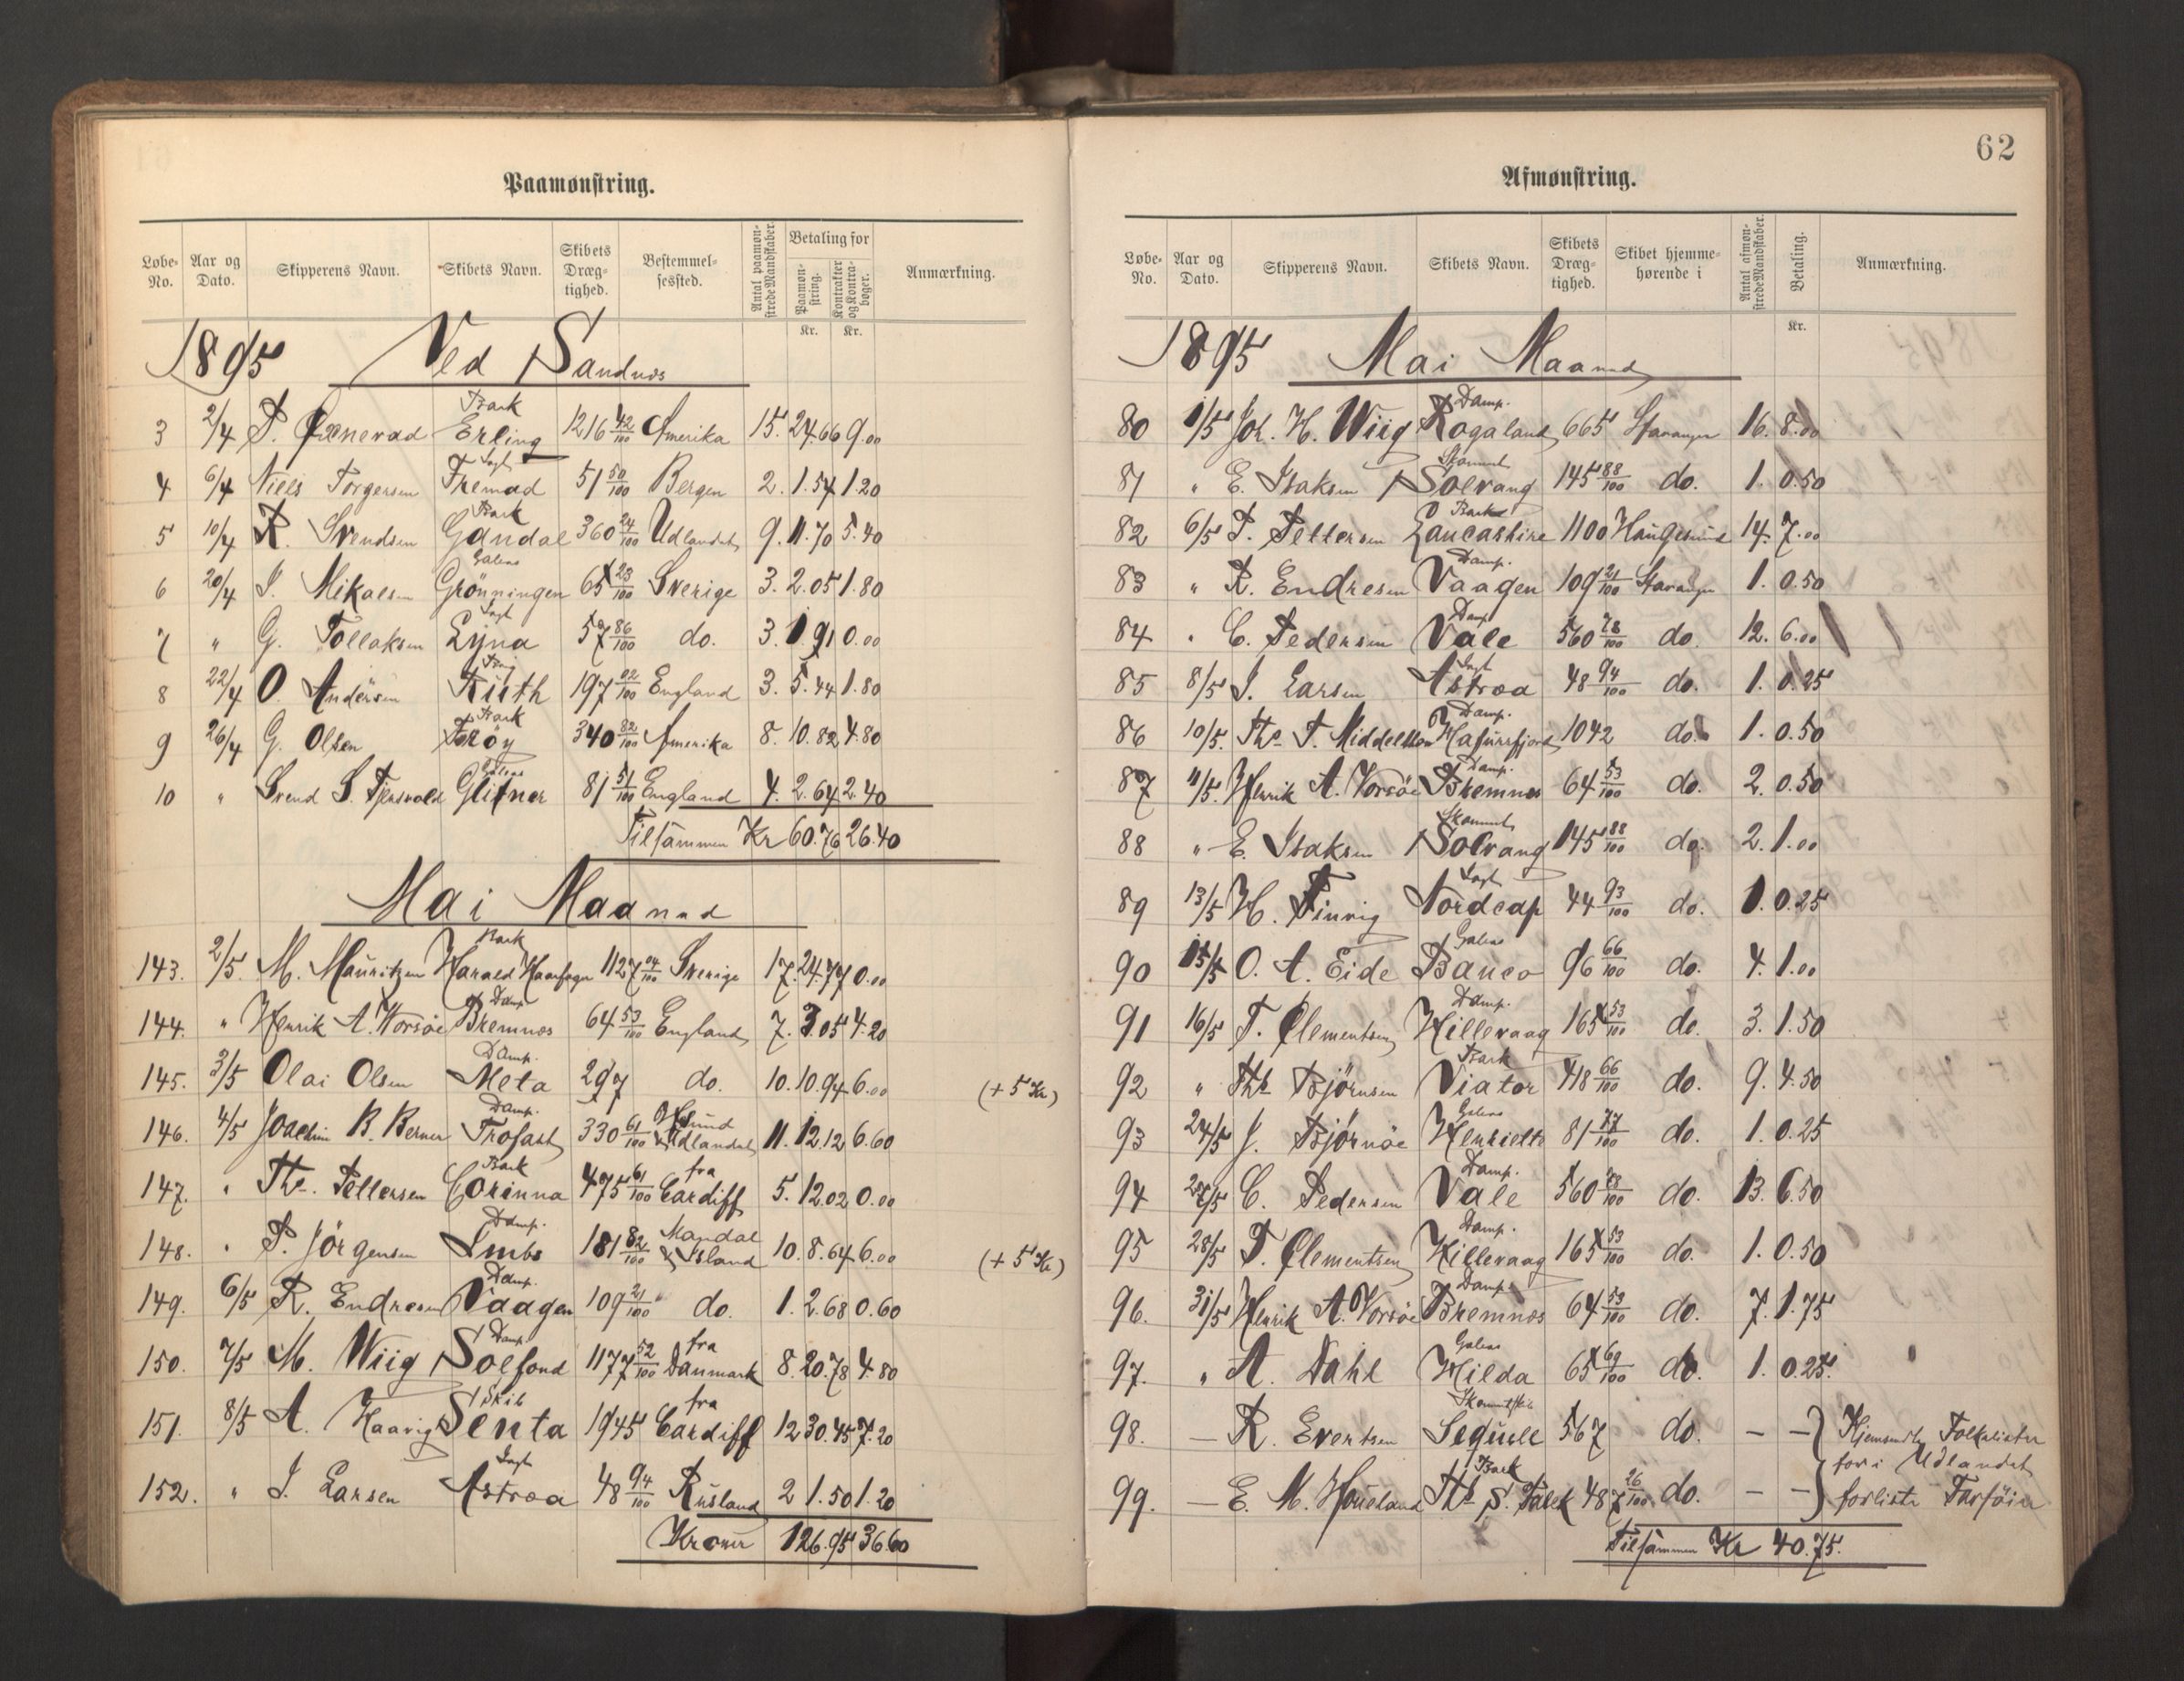 Paamønstring.
Løbe-No. Aar og Dato. Skipperens Navn. Skibets Navn. Skibets Dræg-tighed. Bestemmel-sessted. Antal paamøn-strede Mandskaber. Betaling for Paamøn-string. Kontrakter og Kontra-bøger. Anmærkning.
Kr. Kr.
1895 Ved Sandnæs
3 2/4 P. Bark Erling 1216 42/100 Amerika 15. 24.66 9.00
4 6/4 Niels Torgersen Jagt Fremad 51 50/100 Bergen 2. 1.54 1.20
5 10/4 R. Svendsen Bark Gandal 360 24/100 Udlandet 9. 11.70 5.40
6 20/4 J. Mikalsen Galeas Grönningen 65 23/100 Sverige 3. 2.05 1.80
7 " G. Tollaksen Jagt Lyna 57 86/100 do. 3. 1.91 0.00
8 22/4 O. Andersen Brig Ruth 197 02/100 England 3. 5.44 1.80
9 26/4 G. Olsen Bark Fröy 340 82/100 Amerika 8. 10.82 4.80
10 " Svend S. Galeas Glitner 81 51/100 England 4. 2.64 2.40
Tilsammen Kr 60.76 26.40
Mai Maaned
143. 2/5 M. Mauritzen Bark Harald Haarfager 1127 04/100 Sverige 17. 24.77 0.00
144. " Henrik A. Worsöe Damp Bremnæs 64 53/100 England 7. 3.05 4.20
145. 3/5 Olai Olsen Damp. Meta 297 do. 10. 10.94 6.00 (+ 5 Kr)
146. 4/5 Joachim B. Berner Damp. Trofast 330 61/100 H sund & Udlandet 11. 12.12 6.60
147. " Ths. Pettersen Bark Corinna 475 61/100 fra Cardiff 5. 12.02 0.00
148. " P. Jörgensen Damp. Imbs 181 82/100 Mandal & Island 10. 8.64 6.00 (+ 5 Kr)
149. 6/5 R. Endresen Damp. Vaagen 109 21/100 do. 1. 2.68 0.60
150. 7/5 M. Wiig Damp. Solfond 1177 52/100 fra Danmark 8. 20.78 4.80
151. 8/5 A. Haavig Skib Senta 1945 fra Cardiff 12 30.45 7.20
152. " J. Larsen Jagt Astræa 48 94/100 Rusland 2 1.50 1.20
Kroner 126.95 36.60
62
Afmønstring.
Løbe-No. Aar og Dato. Skipperens Navn. Skibets Navn. Skibets Dræg-tighed. Skibet hjemme-hørende i Antal afmøn-strede Mandskaber. Betaling. Anmærkning.
Kr.
1895 Mai Maaned
80 1/5 Joh. H. Wiig Damp. Rogaland 665 Stavanger 16. 8.00
81 " E. Isaksen Skonnert Solvang 145 88/100 do. 1. 0.50
82 6/5 T. Pettersen Bark Lancashire 1100 Haugesund 14. 7.00
83 " R. Endresen Damp. Vaagen 109 21/100 Stavanger 1. 0.50
84 " C. Pedersen Damp Vale 560 78/100 do. 12. 6.00
85 8/5 J. Larsen Jagt Astræa 48 94/100 do. 1. 0.25
86 10/5. Ths. T. Middelthon Damp. Hafursfjord 1042 do. 1. 0.50
87 11/5. Henrik A. Vorsöe Damp. Bremnæs 64 53/100 do. 2. 0.50
88 " E. Isaksen Skonnert Solvang 145 88/100 do. 2. 1.00
89 13/5 H. Jagt Nordcap 44 93/100 do. 1. 0.25
90 15/5 O. A. Eide Galeas Banco 96 66/100 do. 4. 1.00
91 16/5 T. Clementsen Damp. Hillevaag 165 53/100 do. 3. 1.50
92 " Ths Björnsen Bark Viator 418 66/100 do. 9. 4.50
93 24/5 J. Björnöe Galeas Henriette 81 77/100 do. 1. 0.25
94 27/5 C. Pedersen Damp. Vale 560 78/100 do. 13. 6.50
95 28/5 T. Clementsen Damp. Hillevaag 165 53/100 do. 1. 0.50
96. 31/5 Henrik A. Vorsöe Damp Bremnæs 64 53/100 do. 7. 1.75
97. " A. Dahl Galeas Hilda 65 69/100 do. 1. 0.25.
98. — R. Evertsen 567 do. — — } Hjemsendte Folkelister
for i Udlandet
99. — E. M. Houeland Bark Ths S. Falck 487 26/100 do. — — } forliste Fartöier
Tilsammen Kr 40.75.